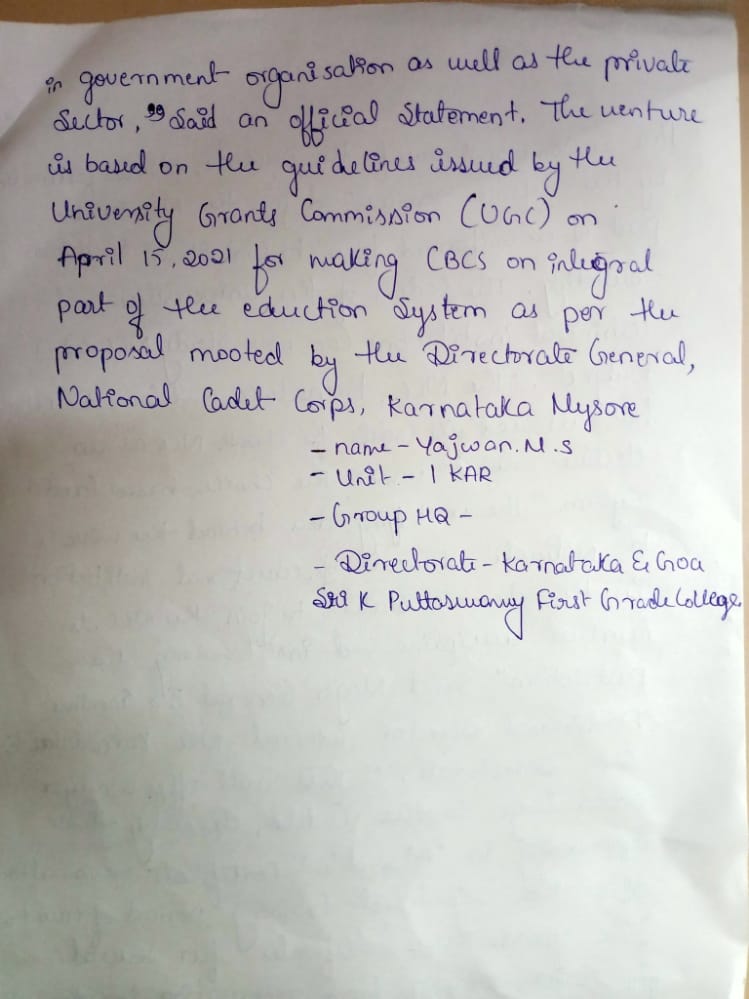 in government organisation as well as the private
Sector," Said an official Statement. The venture
is based on the guidelines issued by the
University Grants Commission (UGC) on
April 15, 2021 for making CBCS on integral
part of the eduction System as per the
proposal mooted by the Directorate General,
National Cadet Corps, Karnataka Mysore
- name - Yajwan.M.S
- Unit - 1 KAR
- Group HQ -
- Directorate - Karnataka & Goa
Sri K Puttaswamy First Grade College